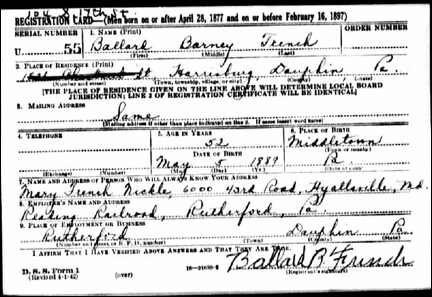 104 S 17th St.
REGISTRATION CARD—(Men born on or after April 28, 1877 and on or before February 16, 1897)
SERIAL NUMBER 1. NAME (Print) ORDER NUMBER
U 55 Ballard Barney French
(First) (Middle) (Last)
2. PLACE OF RESIDENCE (Print)
St, Harrisburg, Dauphin Pa
(Number and street) (Town, township, village, or city) (County) (State)
[THE PLACE OF RESIDENCE GIVEN ON THE LINE ABOVE WILL DETERMINE LOCAL BOARD
JURISDICTION; LINE 2 OF REGISTRATION CERTIFICATE WILL BE IDENTICAL]
3. MAILING ADDRESS
Same
[Mailing address if other than place indicated on line 2. If same insert word same]
4. TELEPHONE 5. AGE IN YEARS 6. PLACE OF BIRTH
52 Middletown
DATE OF BIRTH (Town or county)
May 8 1889 Pa.
(Exchange) (Number) (Mo.) (Day) (Yr.) (State or country)
7. NAME AND ADDRESS OF PERSON WHO WILL ALWAYS KNOW YOUR ADDRESS
Mary French Nickle, 6000 43rd Road, Hyattsville, Md.
8. EMPLOYER'S NAME AND ADDRESS
Reading Railroad, Rutherford, Pa
9. PLACE OF EMPLOYMENT OR BUSINESS
Rutherford Dauphin Pa
(Number and street or R. F. D. number) (Town) (County) (State)
I AFFIRM THAT I HAVE VERIFIED ABOVE ANSWERS AND THAT THEY ARE TRUE.
D. S. S. Form 1
(Revised 4-1-42) (over) 16-21630-2 Ballard B French
(Registrant's signature)